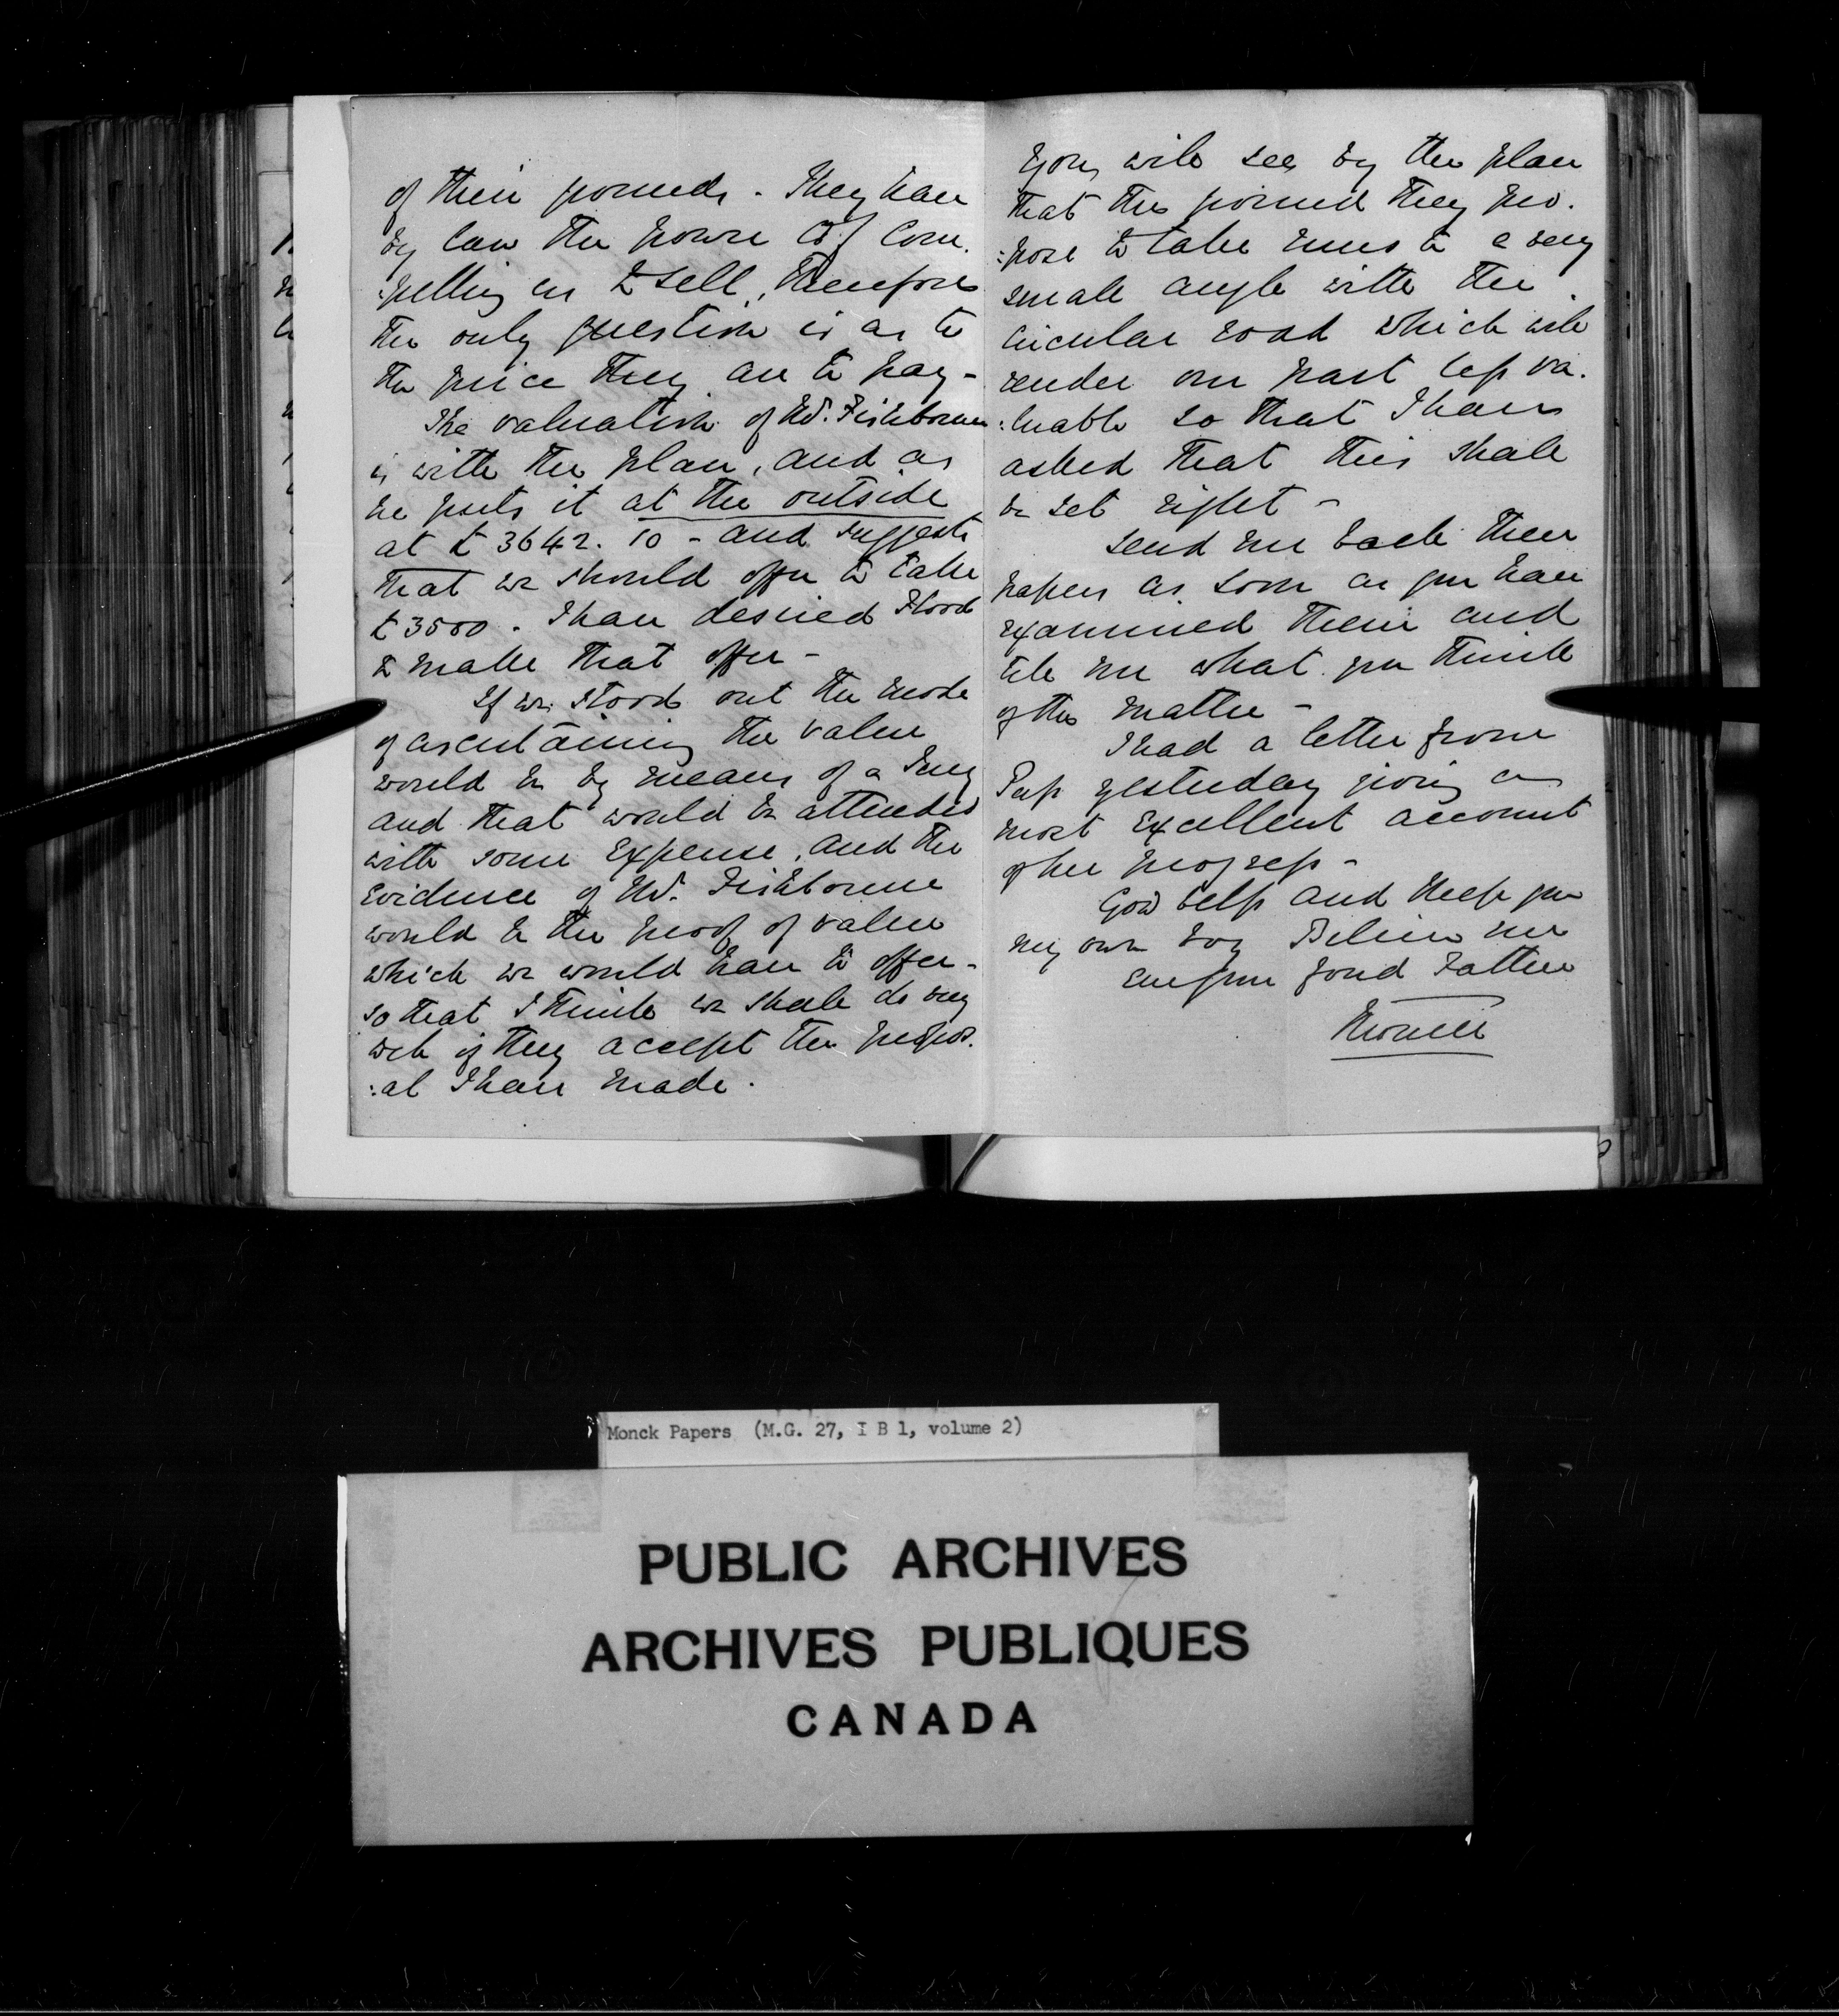 of their grounds. They have
by law the power of Com
:pelling us to sell, therefore
the only question is as to
the price they are to pay -
The valuation of Mr. Fishbourne
is with the plan, and as
he puts it at the outside
at £3642. 10 - and suggests
that we should offer to take
£3500. I have desired Hood
to make that offer -
If we stood out the mode
of ascertaining the value
would be by means of a Jury
and that would be attended
with some expense, and the
evidence of Mr. Fishbourne
would be the proof of value
which we would have to offer -
so that I think we shall do very
well if they accept the propos.
:al I have made.
You will see by the plan
that the ground they pro.
:pose to take runs to a very
small angle with the
Circular road which will
render our part less va.
:luable so that I have
asked that this shall
be set right -
Send me back these
papers as soon as you have
examined them and
tell me what you think
of the matter -
I had a letter from
yesterday giving a
most excellent account
of her progress -
God bless and keep you
my own boy Believe me
ever your fond Father
Monck
Monck Papers (M.G. 27, I B 1, volume 2)
PUBLIC ARCHIVES
ARCHIVES PUBLIQUES
CANADA